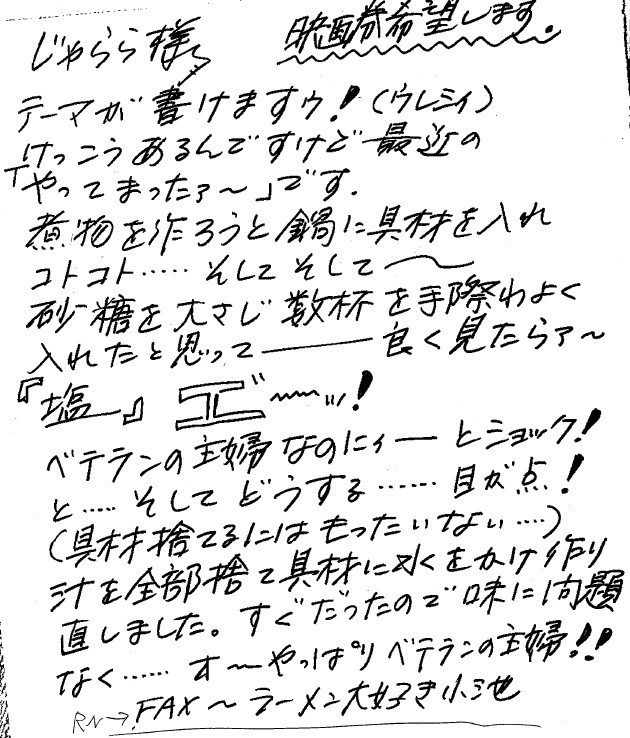 じゃらら様
映画券希望します。
テーマが書けますゥ!(ウレシイ)
けっこうあるんですけど最近の
「やってまったァ〜」です.
煮物を作ろうと鍋に具材を入れ
コトコト……そしてそして〜
砂糖を大さじ数杯を手際わよく
入れたと思って―――良く見たらァ〜
『塩』エ゛〜〜ッ!
ベテランの主婦なのにィーとショック!
と……そしてどうする……目が点!
(具材捨てるにはもったいない….)
汁を全部捨て具材に水をかけ作り
直しました。すぐだったので味に問題
なく……オ〜やっぱりベテランの主婦!!
RN→FAX〜ラーメン大好き小池